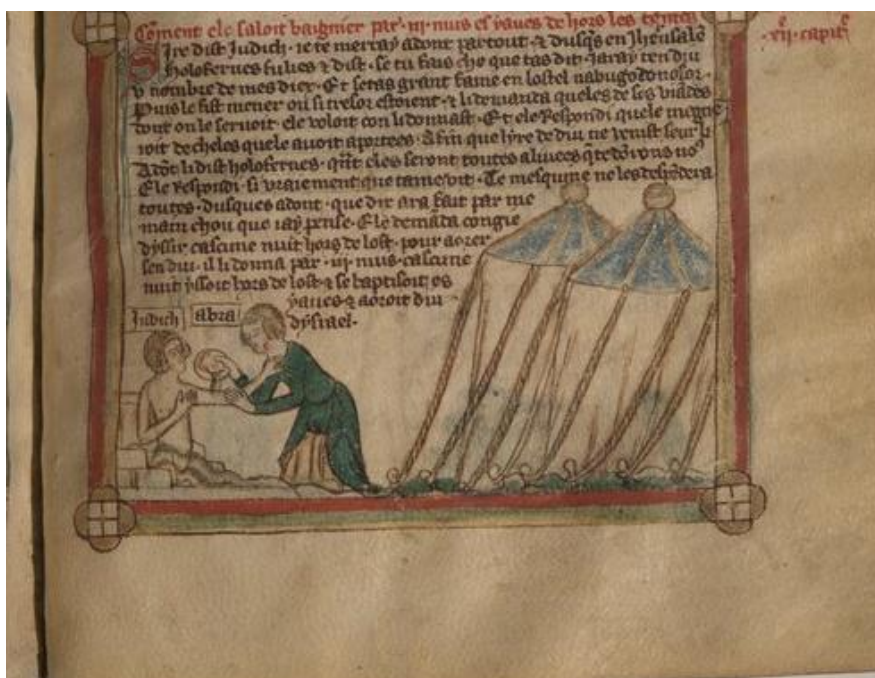 Coment ele saloit baignier par · iii · nuis es yaues de hors les tentes
· xii · capitᵉ
Sire dist Judich · ie te merray adont partout · & dusqs en Jherusalē
Holofernes fu lies & dist · se tu fais cho que tas dit · Jaray ten diu
v nombre de mes diex · Et seras grant fame en lostel nabugodonosor ·
Puis le fist mener ou si tresor estoient · & li demanda queles de ses viādes
dont on le seruoit · ele voloit con li donnast · Et ele Respondi quele
roit de cheles quele auoit aportees · Afin que lyre de diu ne venist seur li
Adōt li dist holofernes · qñt eles seront toutes
Ele Respondi · si vraiement que tame vit · Te mesquine ne les despēdera
toutes · dusques adont · que dix ara fait par me
main chou que iay pense · Ele demāda congie
dyssir cascune nuit hors de lost · pour aorer
sen diu · il li donna par · iii · nuis · cascune
nuit yssoit hors de lost & se baptisoit es
yaues & aoroit diu
dysrael ·
Judich
abra